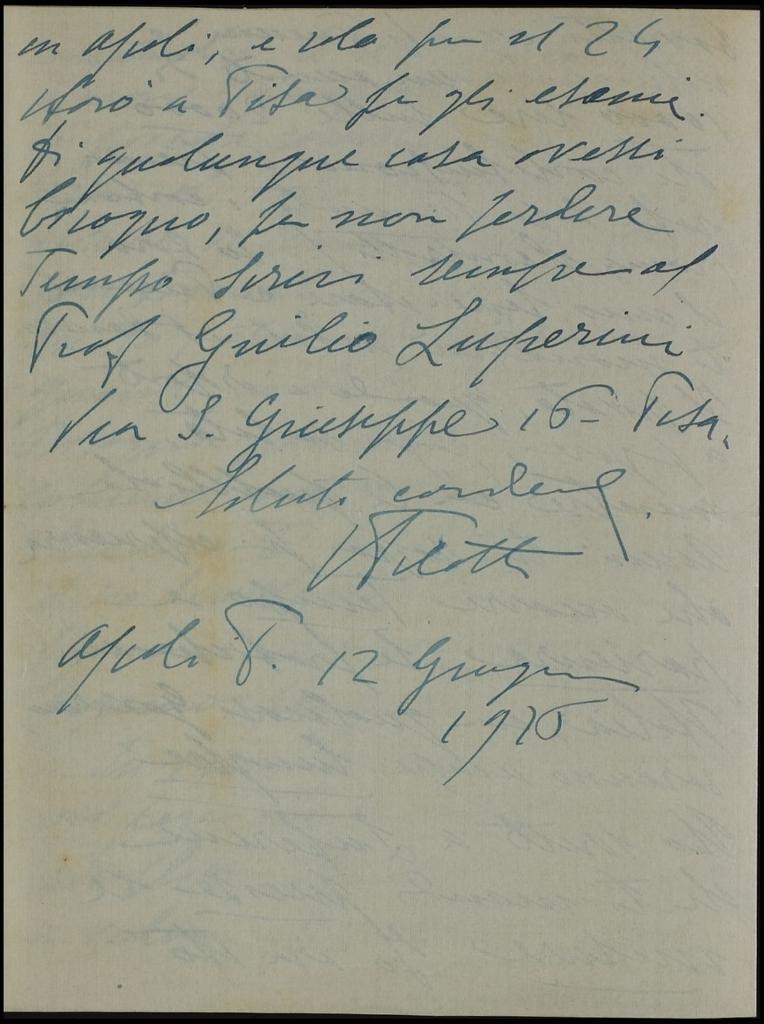 in Ascoli, e solo per il 24
sarò a Pisa per gli esami.
Di qualunque cosa avessi
bisogno, per non perdere
Tempo scrivi sempre al
Prof Giulio Luperini
Via S. Giuseppe 16 - Pisa.
Saluti cordiali.
12 Giugno
1926